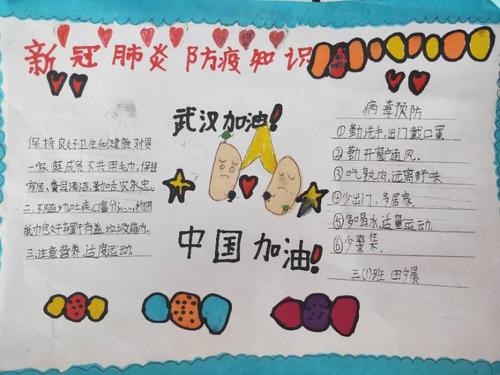 新冠肺炎防疫知识
武汉加油!
保持良好卫生和健康习惯
一、家庭成员不共用毛巾,保持
二、不随地吐痰,
纸巾包好弃置于有盖垃圾箱内。
三、注意营养,适度运动
中国加油!
病毒预防
①勤洗手,出门戴口罩
②勤开窗通风。
③吃熟肉,远离野味
④少出门,多居家
⑤多喝水,适量运动
⑥少聚集。
三(1)班